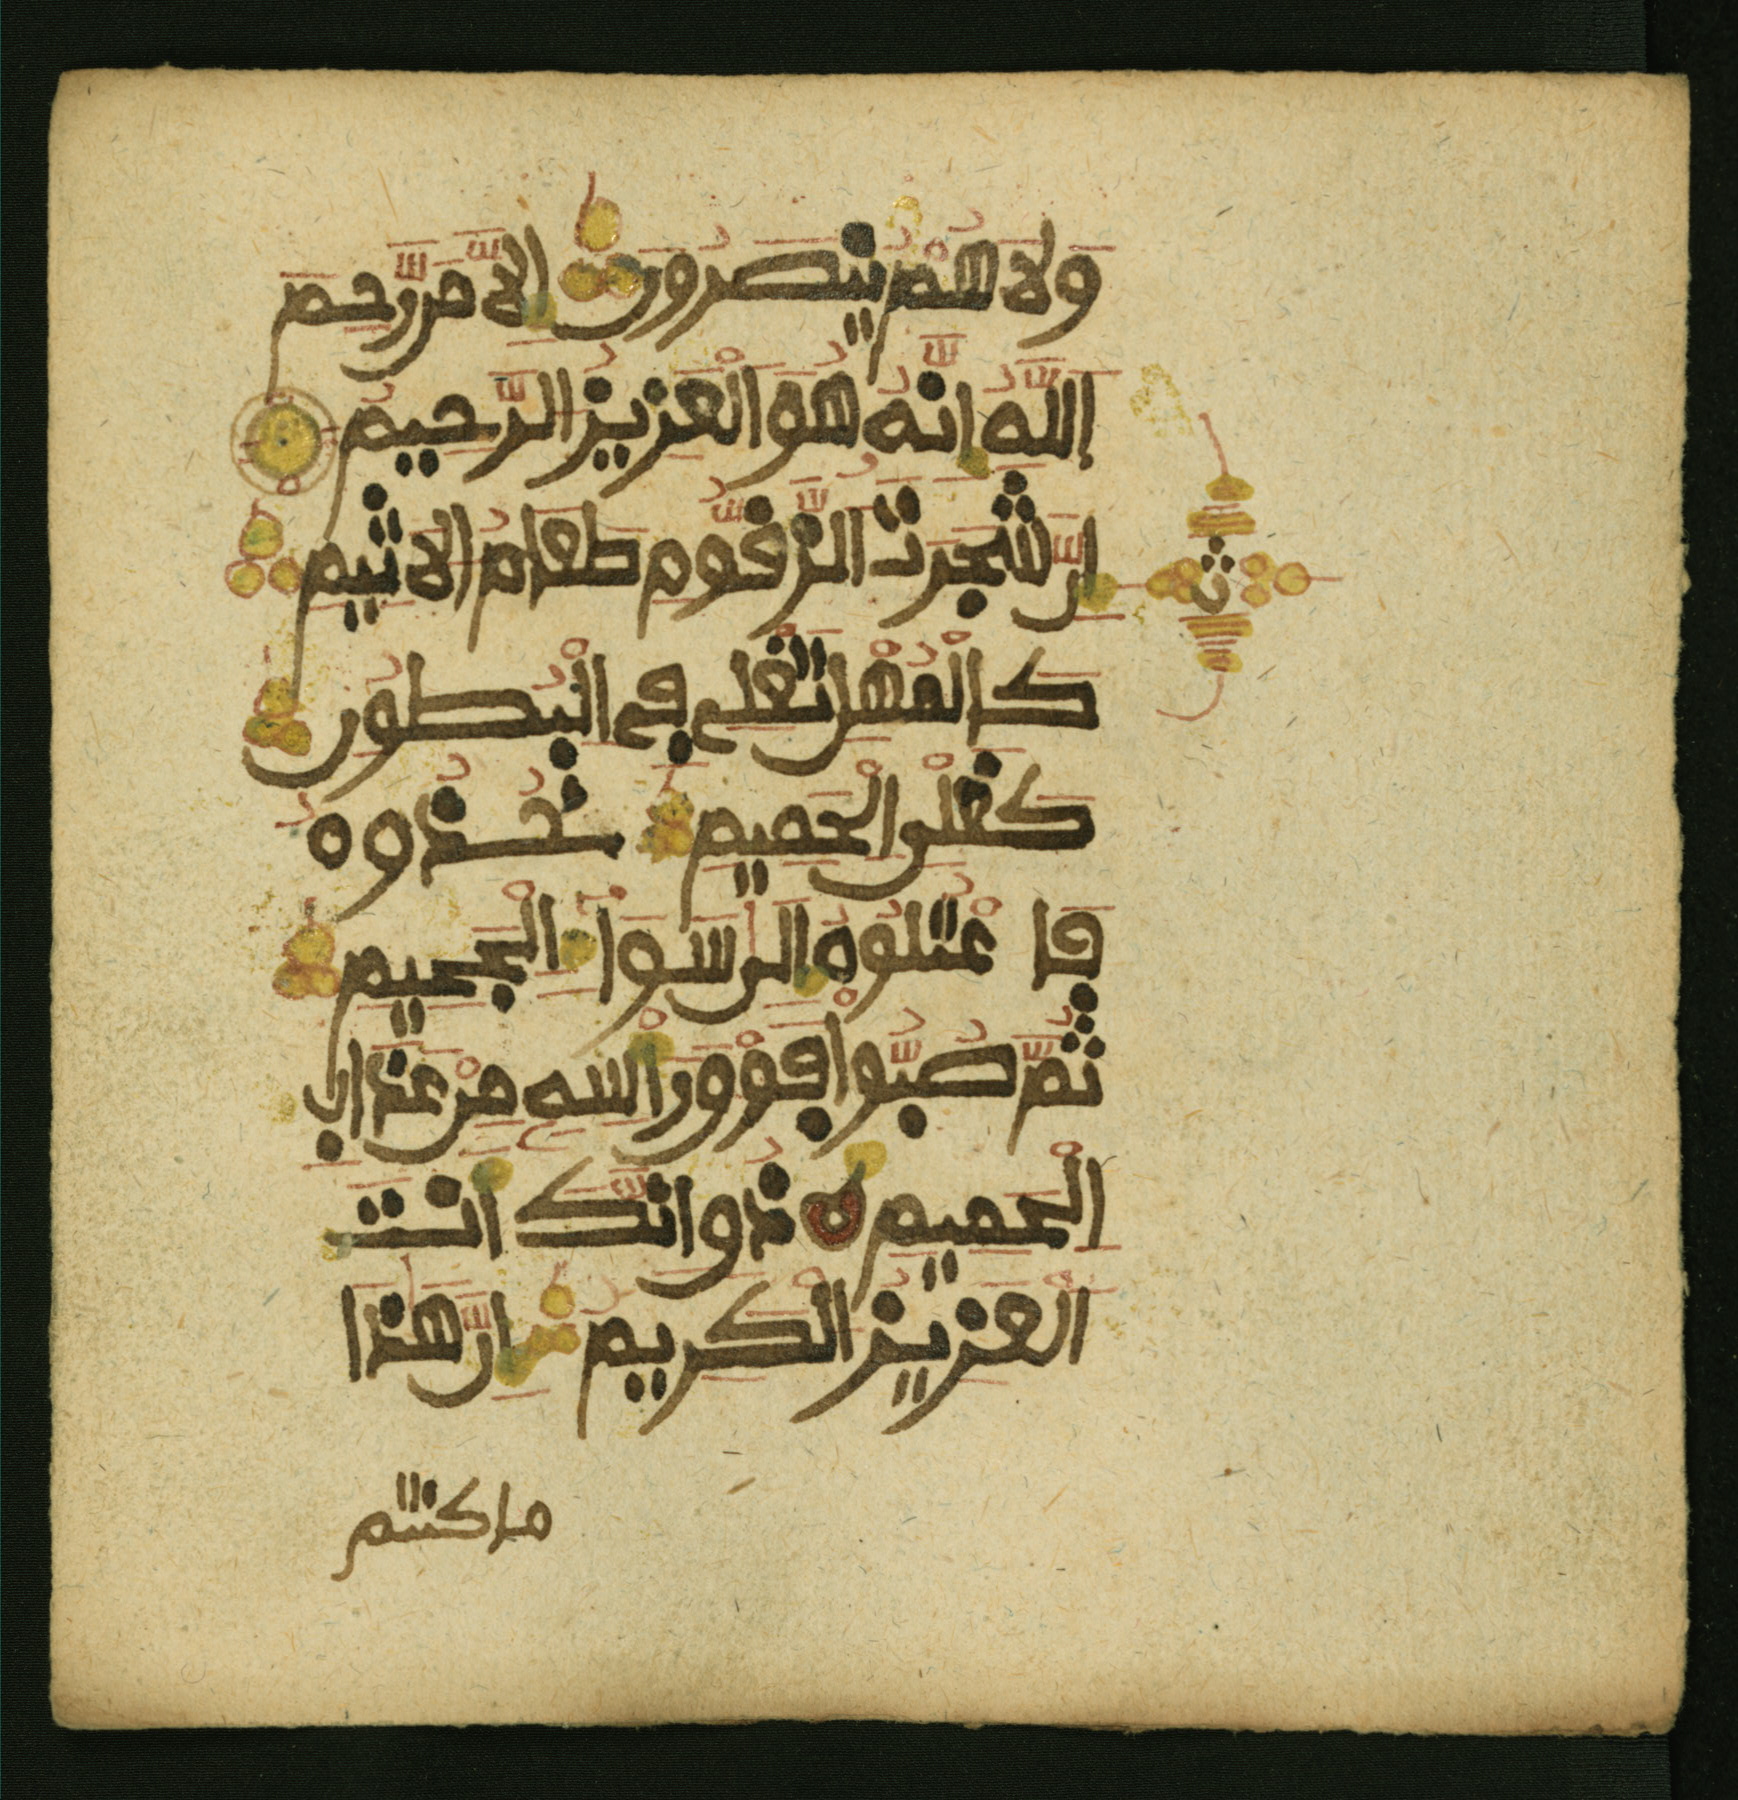 ولا هم ينصرون الا من رحم
الله انه هو العزيز الرحيم
ان شجرت الزقوم طعام الاثيم
كالمهل تغلى فى البطون
كغلى الحميم خذوه
فا عتلوه الى سوا الجحيم
ثم صبوا فوق راسه من عذاب
الحميم ذق انك انت
العزيز الكريم ان هذا
ما كنتم